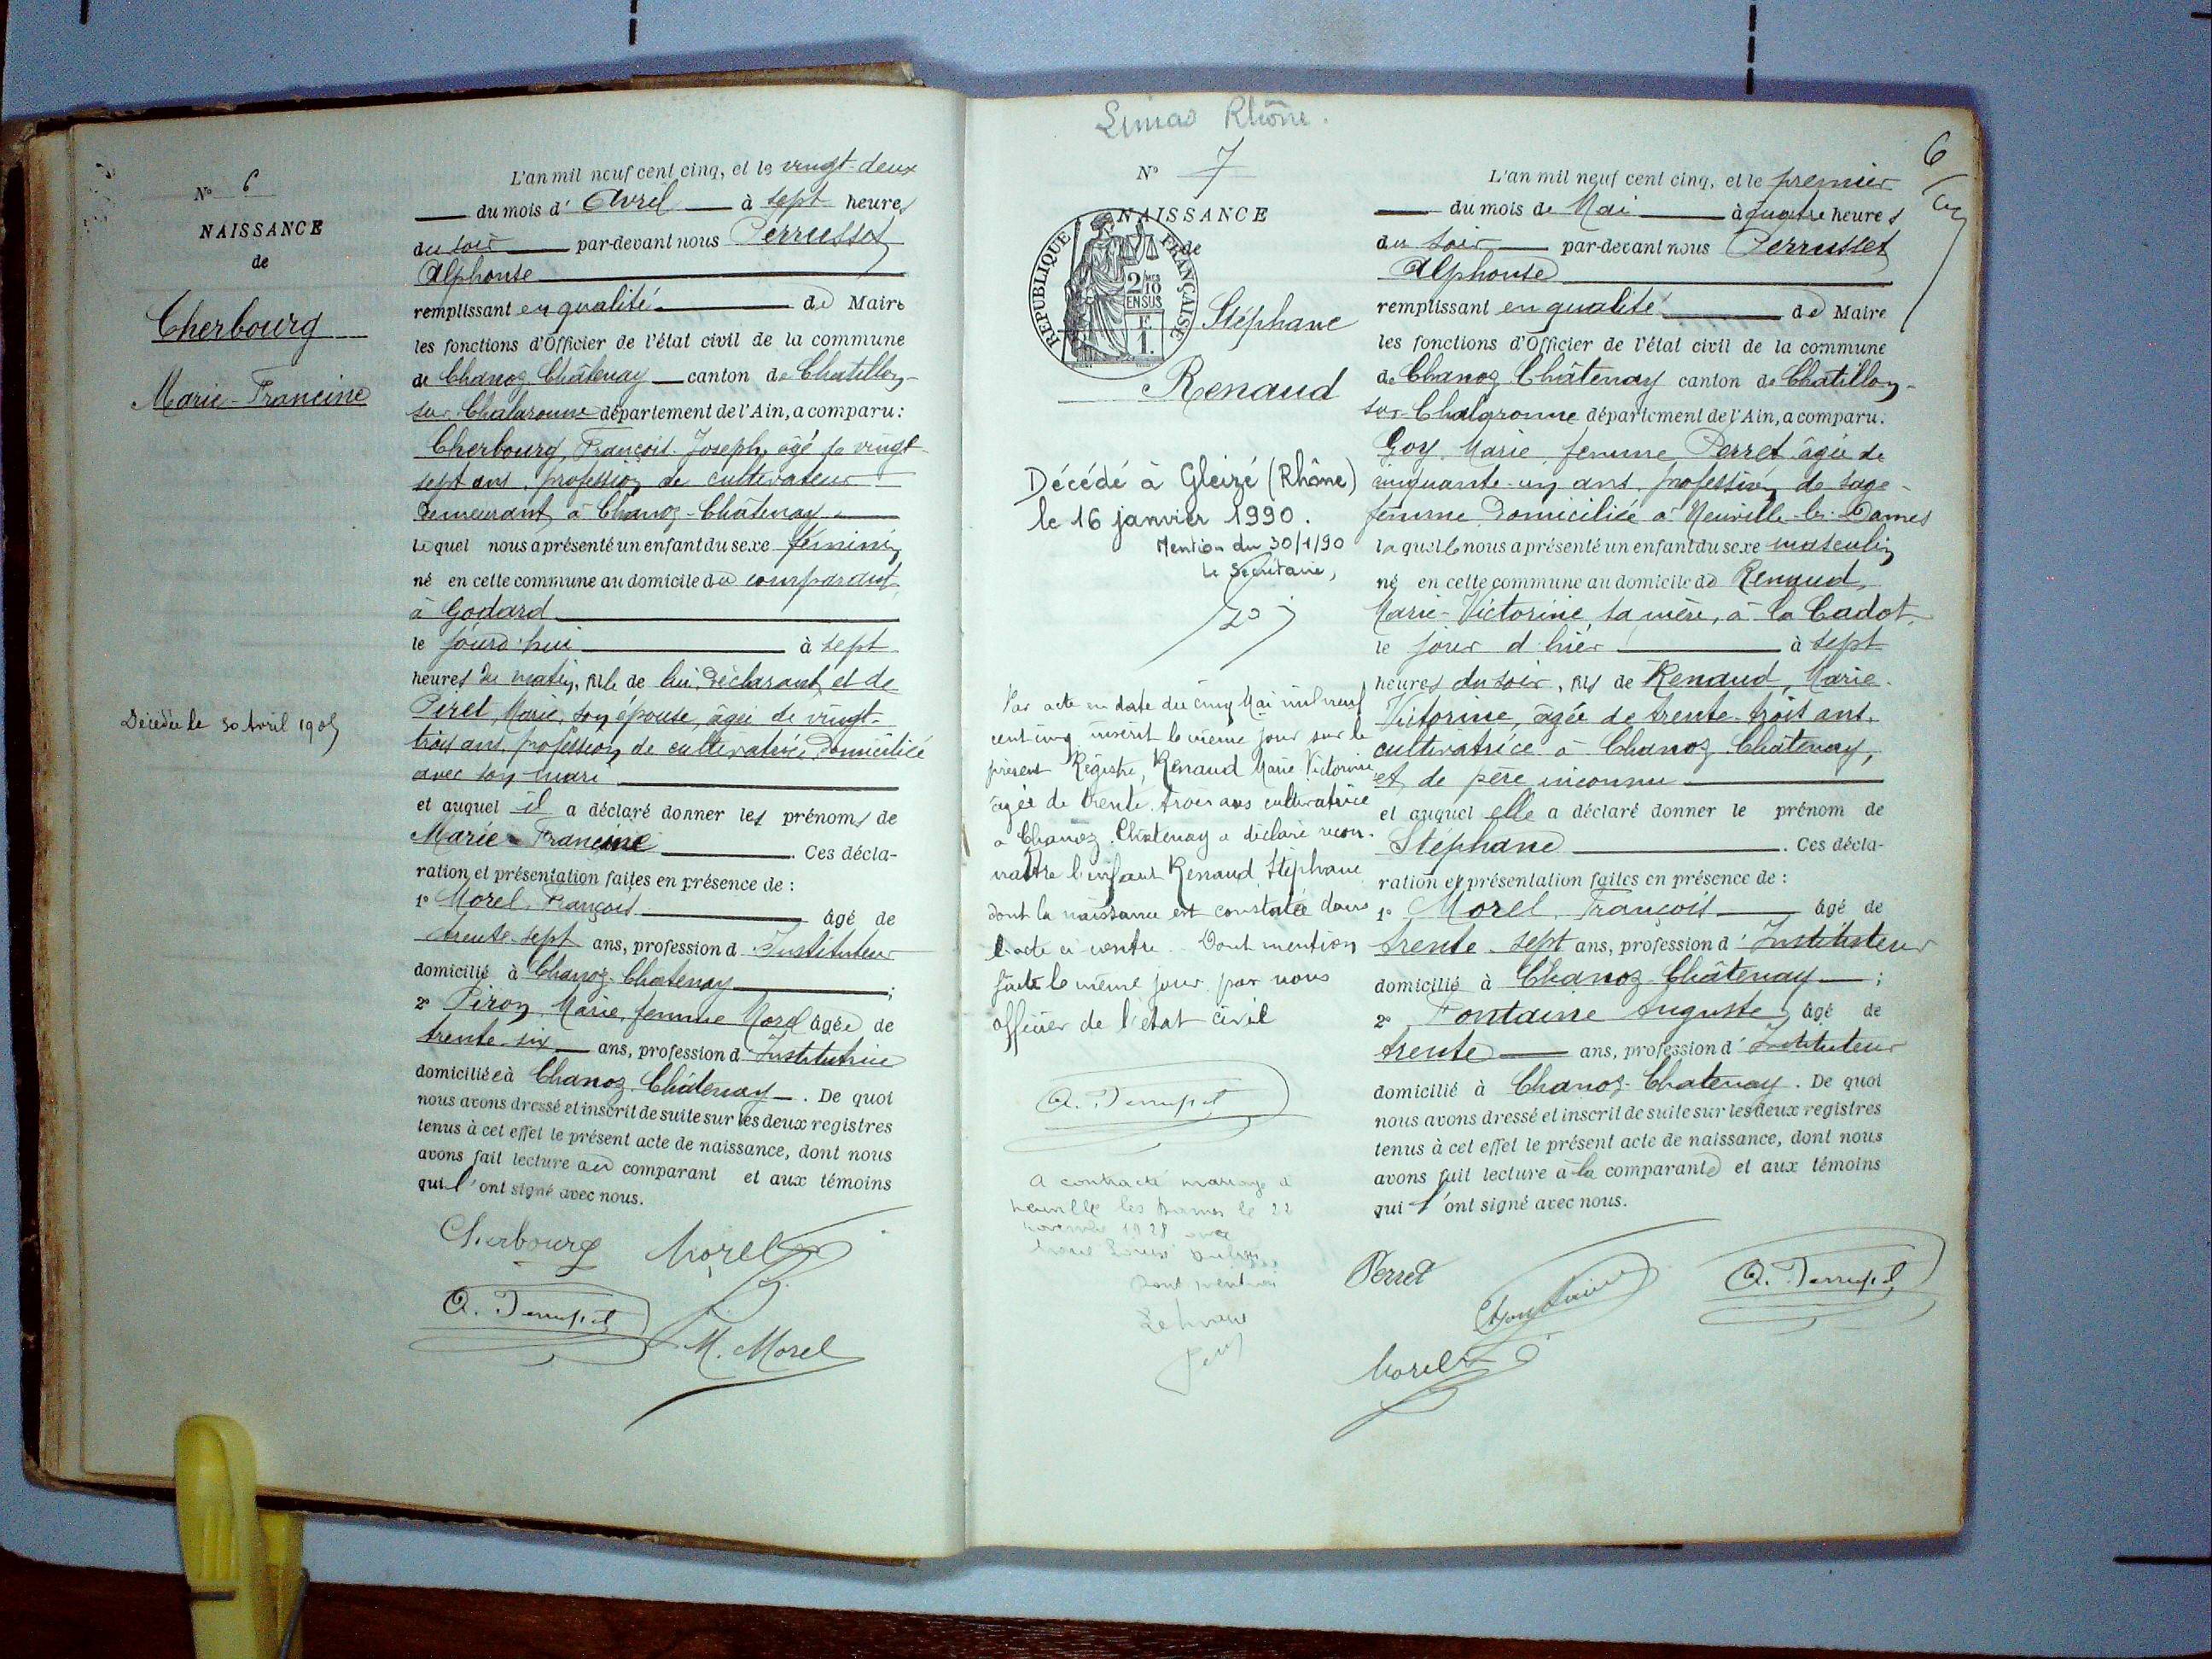 N° 6
NAISSANCE
de
Cherbourg
Marie-Francine
Décédée le 30 Avril 1905
L'an mil neuf cent cinq, et le vingt-deux
du mois d' Avril à sept heures
du soir par-devant nous Perrusset
Alphonse
remplissant en qualité de Maire
les fonctions d'Officier de l'état civil de la commune
de Chanoz-Châtenay canton de Chatillon-
sur-Chalaronne département de l'Ain, a comparu:
Cherbourg, François-Joseph, âgé de vingt-
sept ans, profession de cultivateur
demeurant à Chanoz-Châtenay
lequel nous a présenté un enfant du sexe féminin
né en cette commune au domicile du comparant
à Godard
le jourd'hui à sept
heures du matin, fille de lui, déclarant, et de
Piret, Marie, son épouse, âgée de vingt-
trois ans, profession de cultivatrice domiciliée
avec son mari
et auquel il a déclaré donner les prénoms de
Marie-Francine. Ces décla-
ration et présentation faites en présence de :
1° Morel, François âgé de
trente-sept ans, profession d'Instituteur
domicilié à Chanoz-Chatenay ;
2° Piron, Marie, femme Morel âgée de
trente-six ans, profession d'Institutrice
domiciliée à Chanoz-Châtenay. De quoi
nous avons dressé et inscrit de suite sur les deux registres
tenus à cet effet le présent acte de naissance, dont nous
avons fait lecture au comparant et aux témoins
qui l'ont signé avec nous.
Cherbourg Morel
A. Perrusset
M. Morel
Limas Rhône.
6
N° 7
NAISSANCE
de
REPUBLIQUE FRANÇAISE
2/10 MES
EN SUS
F.
1.
Stéphane
Renaud
Décédé à Gleizé (Rhône)
le 16 janvier 1990.
Mention du 30/1/90
Le Secrétaire,
Par acte en date du cinq Mai mil neuf
cent cinq inscrit le même jour sur le
présent Registre, Renaud Marie Victorine
âgée de trente-trois ans cultivatrice
à Chanoz-Châtenay a déclaré recon-
naître l'enfant Renaud Stéphane
dont la naissance est constatée dans
l'acte ci contre. Dont mention
faite le même jour par nous
officier de l'état civil
A. Perrusset
A contracté mariage à
Neuville les Dames le 22
novembre 1928 avec
Marie Louise
Dont mention
Le
L'an mil neuf cent cinq, et le premier
du mois de Mai à quatre heures
du soir par-devant nous Perrusset
Alphonse
remplissant en qualité de Maire
les fonctions d'Officier de l'état civil de la commune
de Chanoz-Châtenay canton de Chatillon-
sur-Chalaronne département de l'Ain, a comparu.
Goy, Marie, femme Perret, âgée de
cinquante-un ans, profession de sage-
femme domiciliée à Neuville-les-Dames
laquelle nous a présenté un enfant du sexe masculin
né en cette commune au domicile de Renaud,
Marie-Victorine, sa mère, à la Cadot
le jour d'hier à sept
heures du soir, fils de Renaud, Marie-
Victorine, âgée de trente-trois ans,
cultivatrice à Chanoz-Châtenay,
et de père inconnu
et auquel elle a déclaré donner le prénom de
Stéphane. Ces décla-
ration et présentation faites en présence de :
1° Morel, François âgé de
trente-sept ans, profession d'Instituteur
domicilié à Chanoz-Châtenay ;
2° Fontaine Auguste, âgé de
trente ans, profession d'Instituteur
domicilié à Chanoz-Chatenay. De quoi
nous avons dressé et inscrit de suite sur les deux registres
tenus à cet effet le présent acte de naissance, dont nous
avons fait lecture à la comparante et aux témoins
qui l'ont signé avec nous.
Perret Fontaine A. Perrusset
Morel